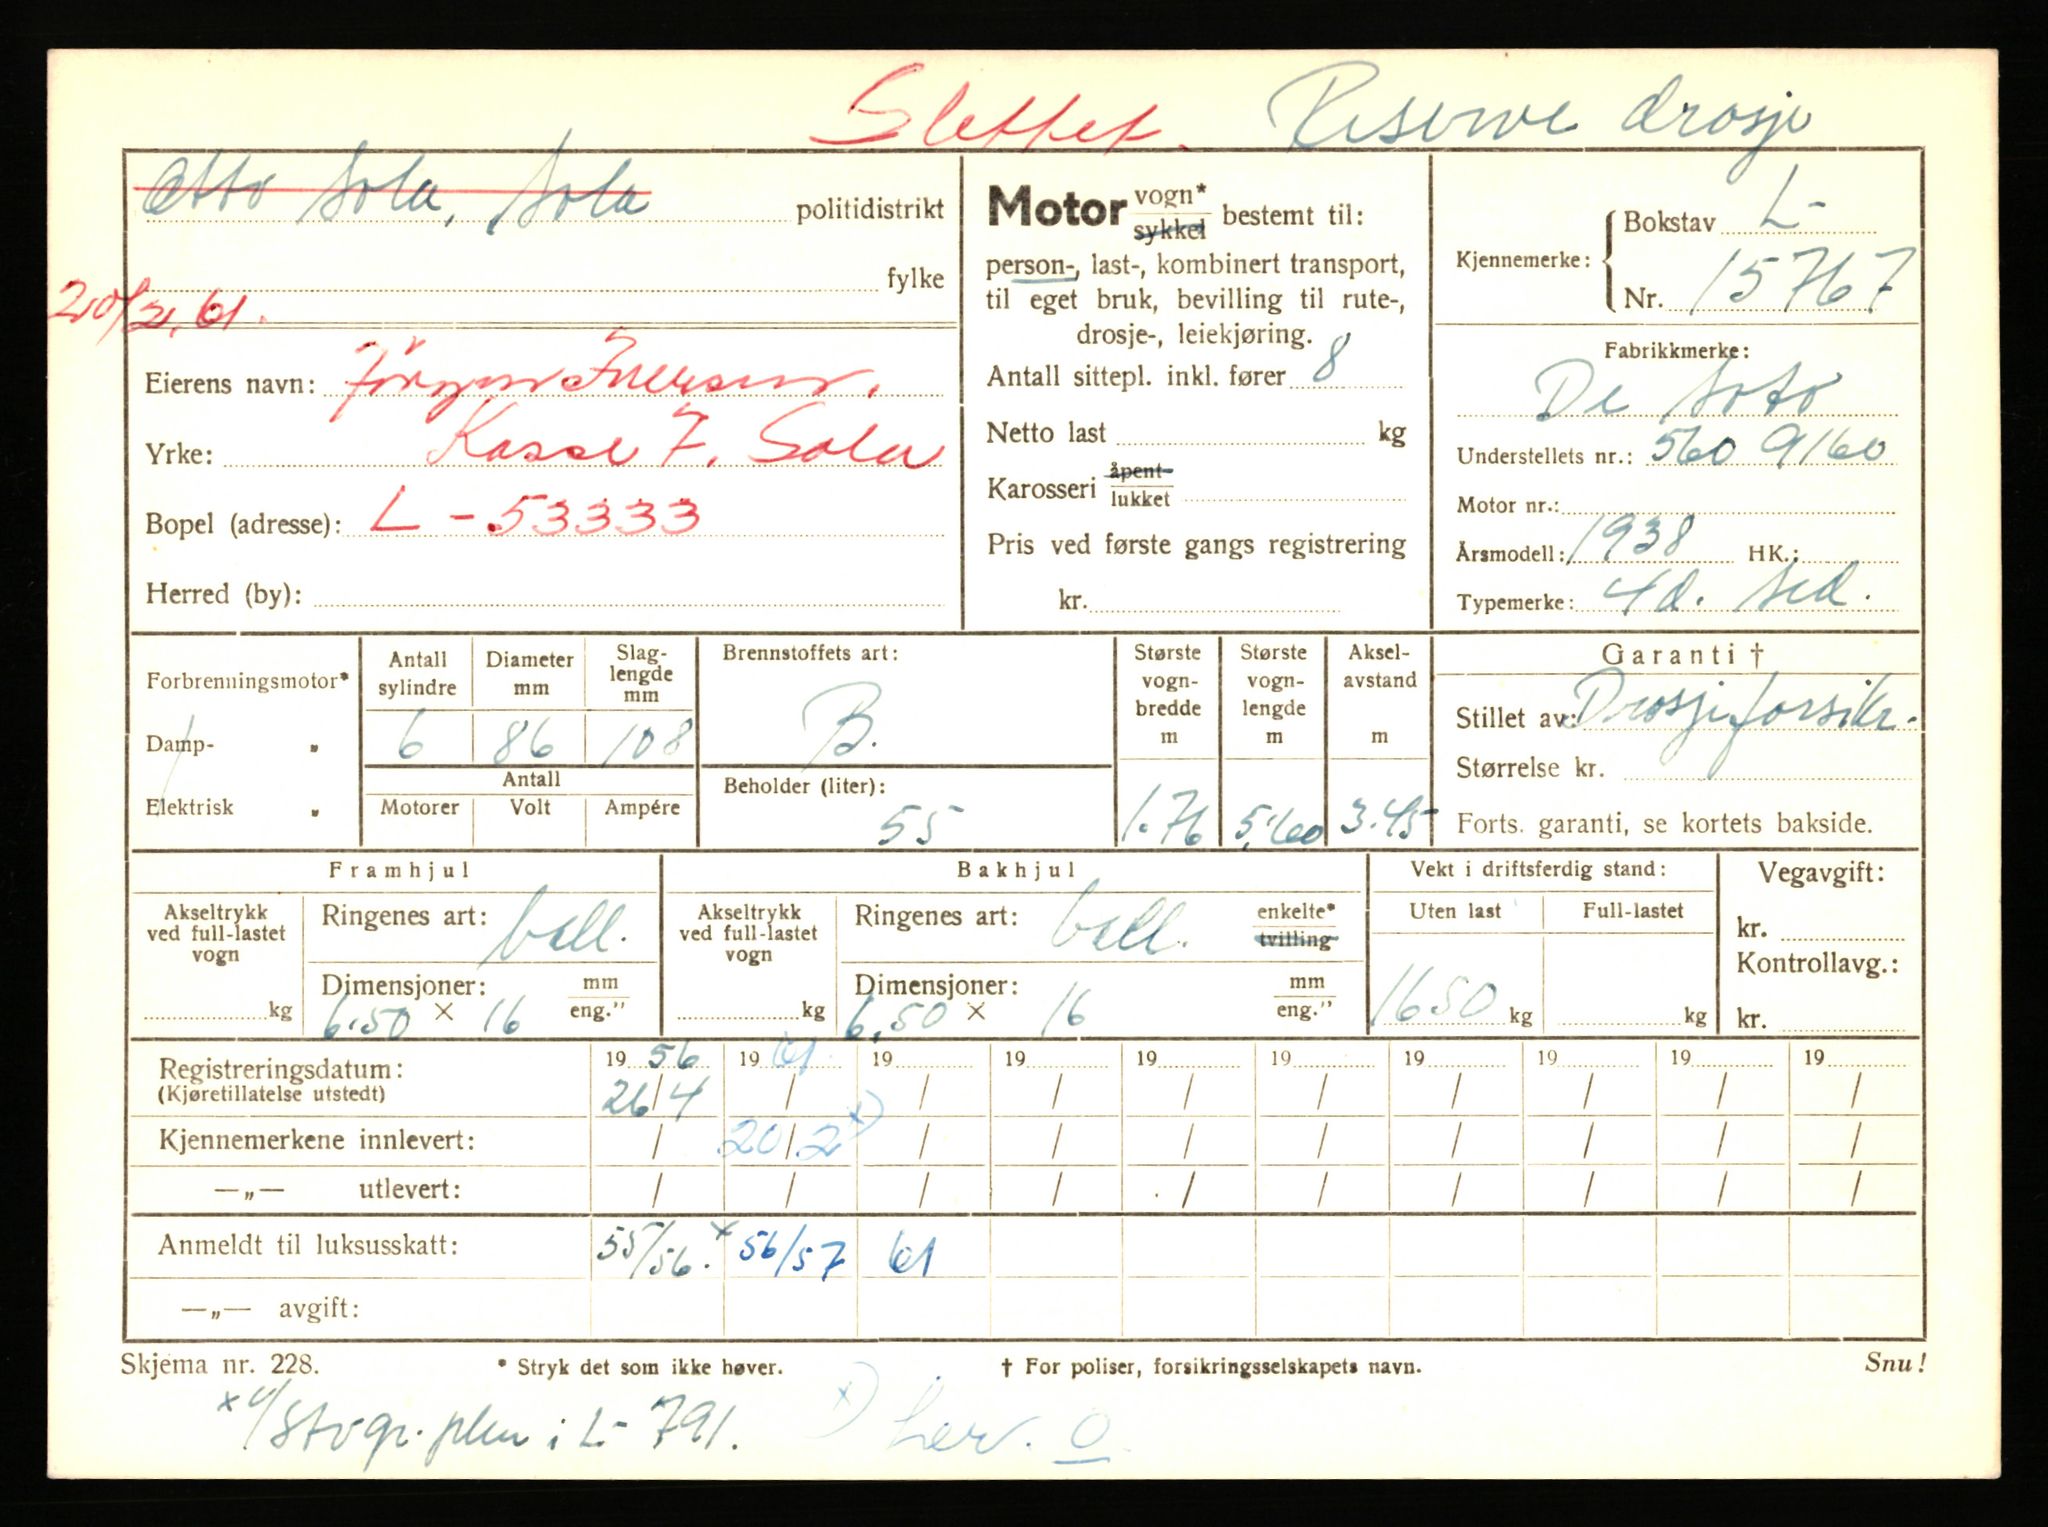 Slettet. Reserve drosje
Otto Sola, Sola politidistrikt
fylke
20/2. 61.
Eierens navn: Jörgen Iversen.
Yrke: Kasse 7. Sola
Bopel (adresse): L - 53333
Herred (by):
Motor vogn* sykkel bestemt til:
person-, last-, kombinert transport,
til eget bruk, bevilling til rute-,
drosje-, leiekjøring.
Antall sittepl. inkl. fører 8
Netto last kg
Karosseri åpent- lukket
Pris ved første gangs registrering
kr.
Kjennemerke: Bokstav L-
Nr. 15767
Fabrikkmerke:
De Soto
Understellets nr.: 560 9160
Motor nr.:
Årsmodell: 1938 HK.:
Typemerke: 4d. sed.
Forbrenningsmotor*
Damp- "
Elektrisk "
Antall sylindre 6
Diameter mm 86
Slag-lengde mm 108
Antall
Motorer Volt Ampére
Brennstoffets art:
B.
Beholder (liter):
55
Største vogn-bredde m 1.76
Største vogn-lengde m 5.60
Aksel-avstand m 3.45
Garanti †
Stillet av: Drosjeforsikr.
Størrelse kr.
Forts. garanti, se kortets bakside.
Framhjul
Akseltrykk ved full-lastet vogn kg
Ringenes art: ball.
Dimensjoner: mm eng."
6.50 × 16
Bakhjul
Akseltrykk ved full-lastet vogn kg
Ringenes art: ball. enkelte* tvilling
Dimensjoner: mm eng."
6.50 × 16
Vekt i driftsferdig stand:
Uten last Full-lastet
1650 kg kg
Vegavgift:
kr.
Kontrollavg.:
kr.
Registreringsdatum: 19 56 19 61 19 19 19 19 19 19 19 19
(Kjøretillatelse utstedt) 26/4 / / / / / / / / /
Kjennemerkene innlevert: / 20/2 x) / / / / / / / /
—„— utlevert: / / / / / / / / / /
Anmeldt til luksusskatt: 55/56. x 56/57 61
—„— avgift:
Skjema nr. 228. * Stryk det som ikke høver. † For poliser, forsikringsselskapets navn. Snu!
i L- 791. x) Lev. 0